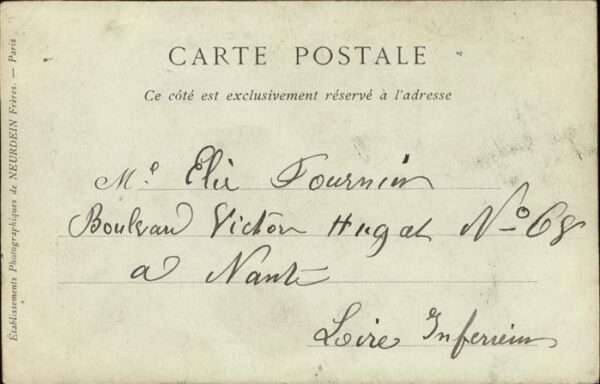 CARTE POSTALE
Ce côté est exclusivement réservé à l'adresse
Mr Elie Fournier
Boulvard Victor Hugot No 68
a Nante
Loire Inferrieur
Établissements Photographiques de NEURDEIN Frères. — Paris